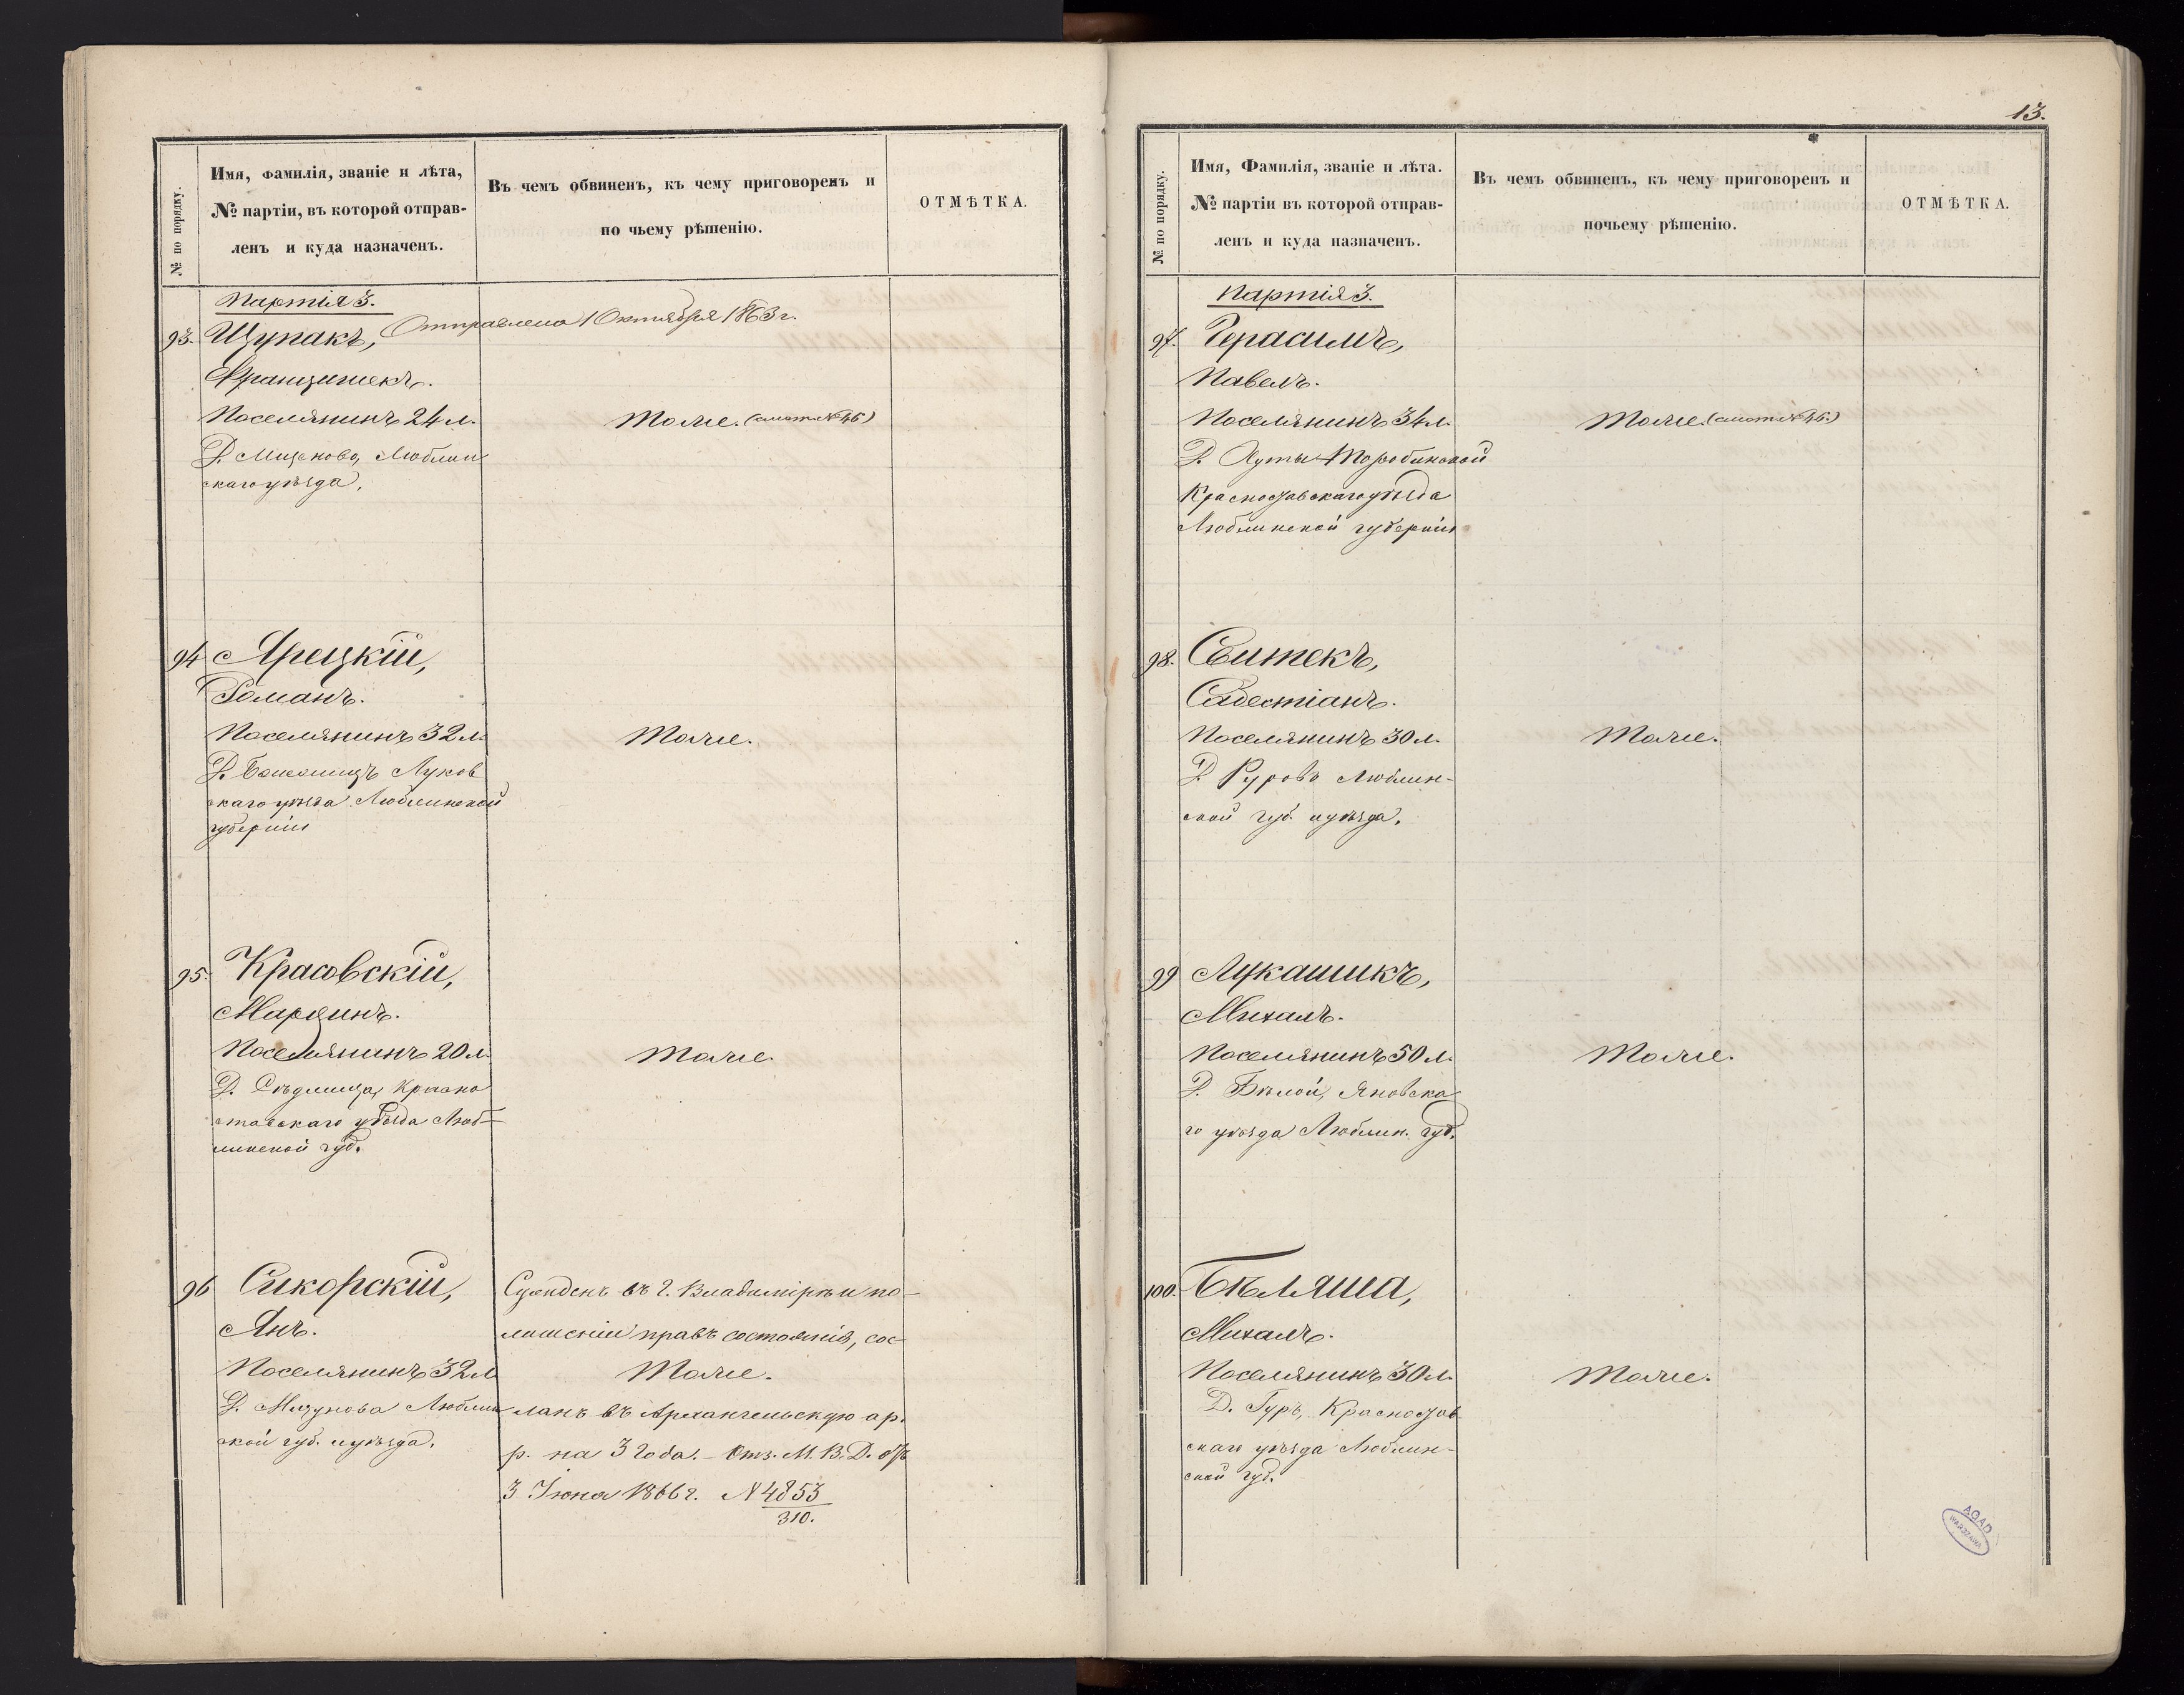 № по порядку.
Имя, Фамилія, званіе и лѣта,
№ партіи, въ которой отправ-
ленъ и куда назначенъ.
Въ чемъ обвиненъ, къ чему приговоренъ и
по чьему рѣшенію.
ОТМѢТКА.
Партія 3.
Отправлена 1 Октября 1863 г.
93. Щупакъ,
Францишекъ.
Поселянинъ 24 л.
Тоже. (смот. № 46)
Люблин
скаго уѣзда.
94 Ярецкій,
Романъ.
Поселянинъ 32 л.
Тоже.
Д. Луков
скаго уѣзда Люблинской
губерніи
95. Красовскій,
Марцинъ.
Поселянинъ 20 л.
Тоже.
Д. Сѣдлища, Красно
ставскаго уѣзда Люб-
линской губ.
96 Сикорскій,
Янъ.
Поселянинъ 32 л
Д. Люблин
ской губ. и уѣзда.
Сужденъ въ г. Владимірѣ и по-
лишеніи правъ состоянія, сос
Тоже.
ланъ въ Архангельскую ар.
р. на 3 года. – Отз. М. В. Д. отъ
3 Іюна 1866 г. № 4853
310.
13.
№ по порядку.
Имя, Фамилія, званіе и лѣта.
№ партіи въ которой отправ-
ленъ и куда назначенъ.
Въ чемъ обвиненъ, къ чему приговоренъ и
почьему рѣшенію.
ОТМѢТКА.
Партія 3.
97. Герасимъ,
Павелъ.
Поселянинъ 34 л.
Тоже. (смот. № 46.)
Д. Гуты Торобинской
Красноставскаго уѣзда
Люблинской губерніи
98. Свитекъ,
Себестіанъ.
Поселянинъ 30 л.
Тоже.
Д. Люблин-
ской губ. и уѣзда.
99 Лукашикъ,
Михалъ.
Поселянинъ 50 л.
Тоже.
Д. Бѣлой, Яновска
го уѣзда Люблин. губ.
100. Бѣляша,
Михалъ.
Поселянинъ 30 л.
Тоже.
Д. Гуръ, Красностав
скаго уѣзда Люблин-
ской губ.
AGAD
WARSZAWA